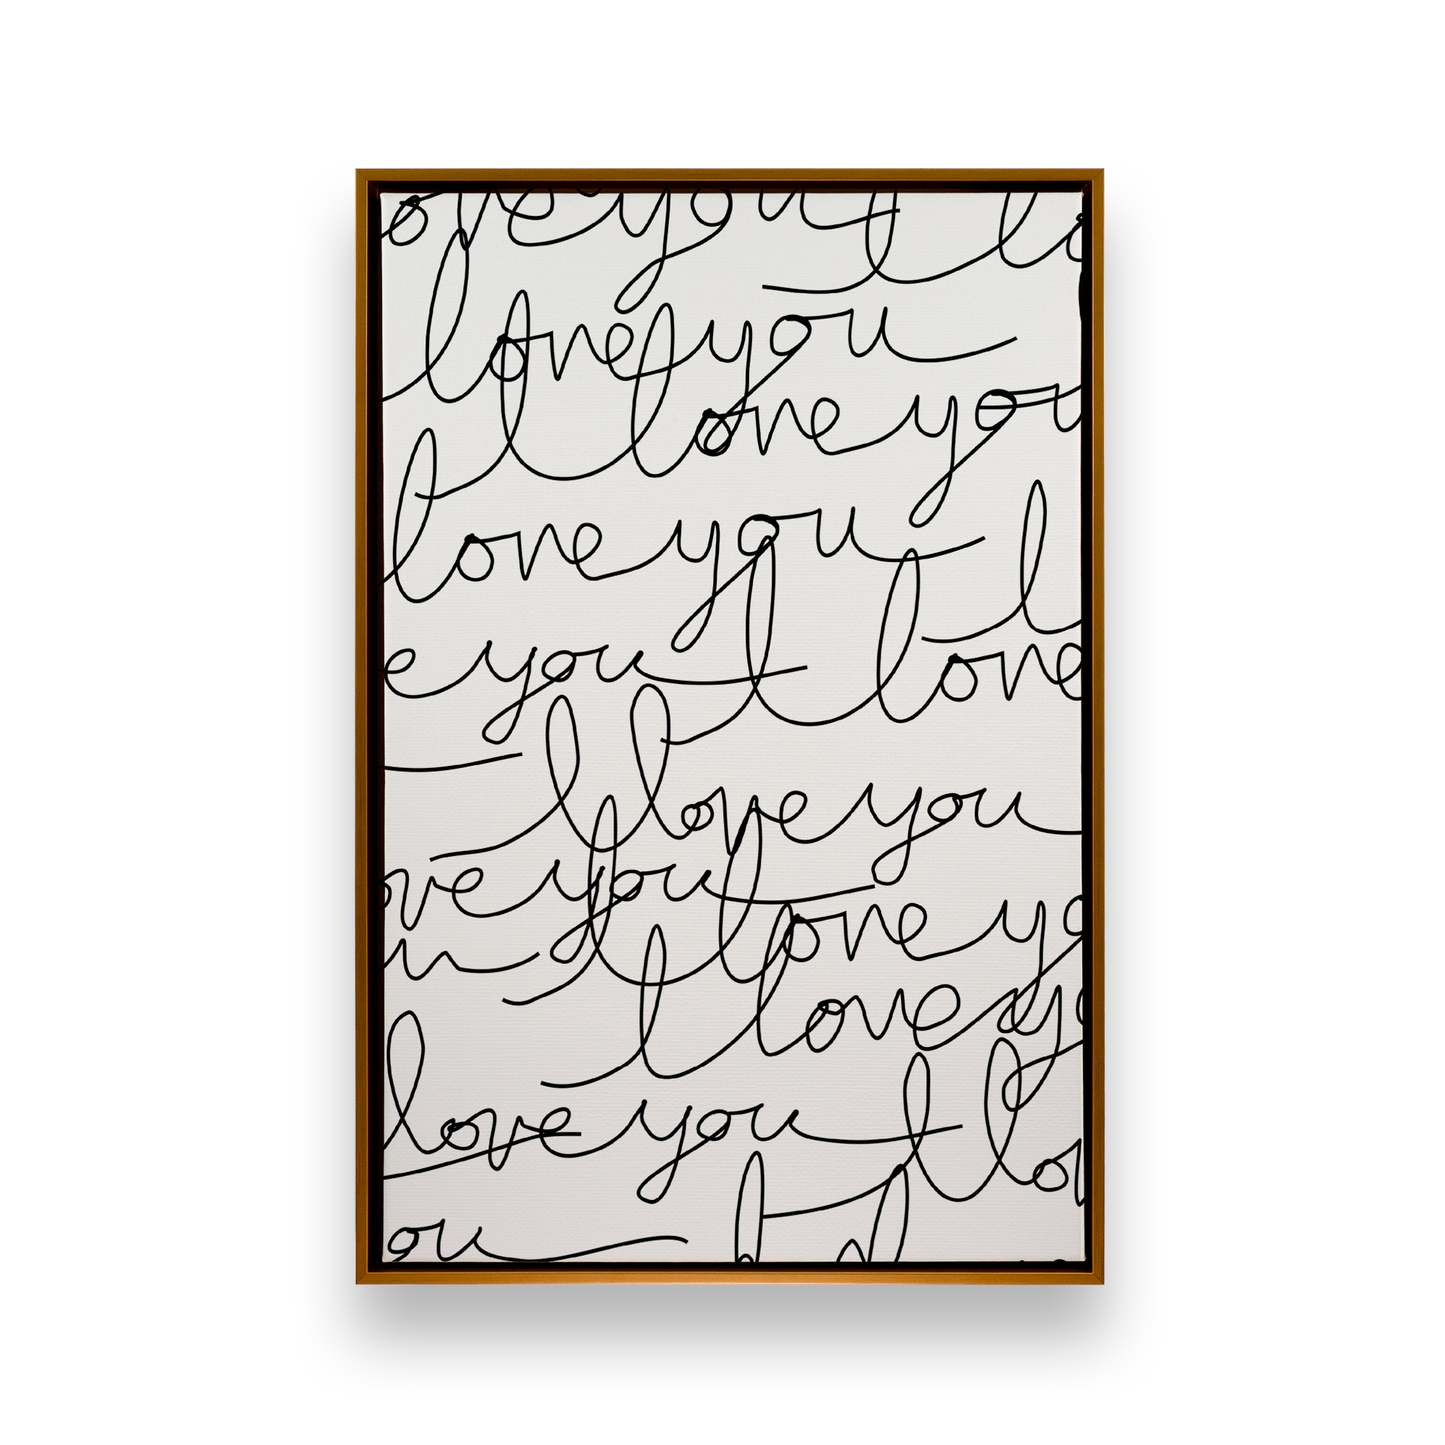 ove you I lo
love you
I love you
love you I
e you I love
I love you
ove you I love yo
u I love yo
love you I lo
ou I